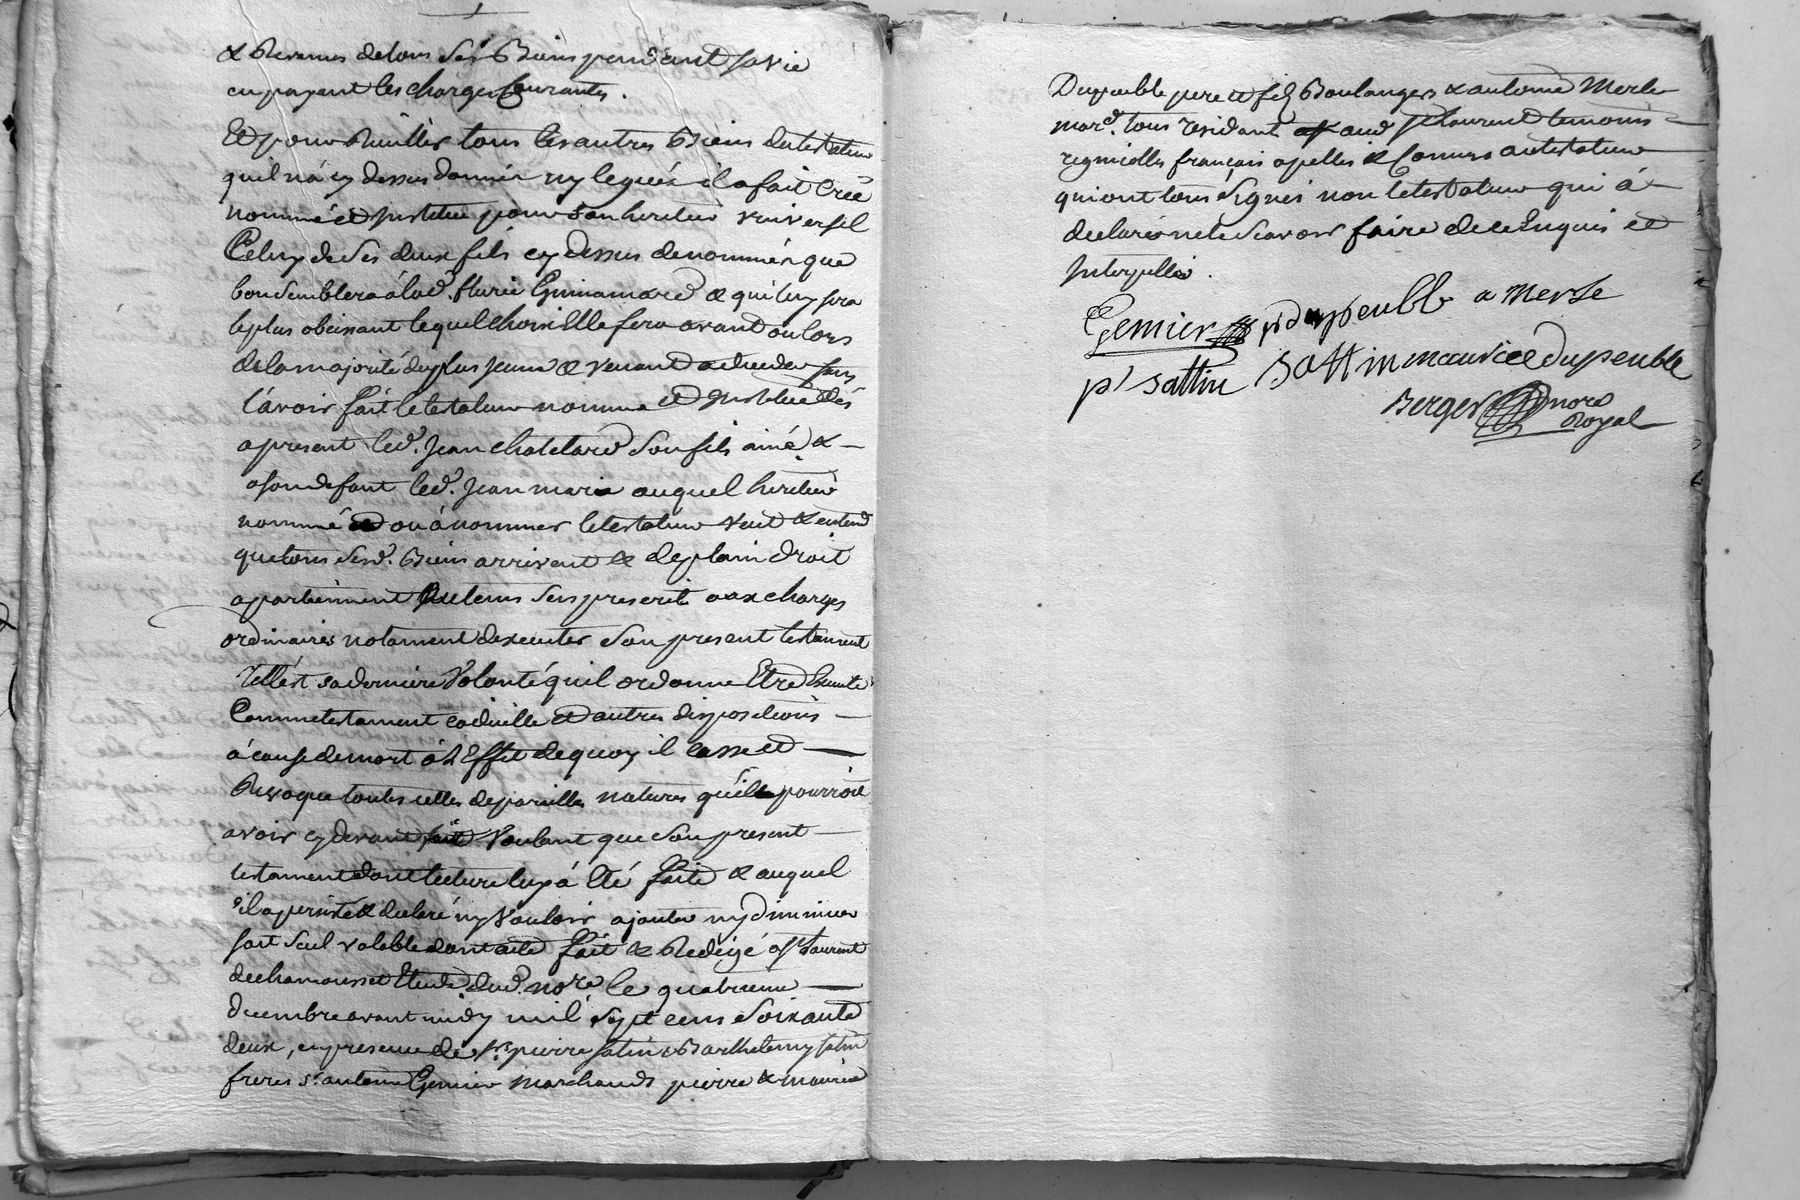 & Revenus de tous ses Biens pendant sa vie
en payant les charges Courantes.
Et pour Ruillir tous les autres Biens du testateur
quil n'á cy dessus donnés ny legués il a fait Créé
nommé et Institué pour son heritier universel
Celuy de ses deux fils cy dessus denommés que
bon semblera á lad.e fleurie Guinamard & qui luy sera
le plus obeissant lequel choix Elle fera avant ou lors
de la majorité du plus jeune & venant a deceder sans
l'avoir fait le testateur nomme et Institue dés
a present led. Jean chatelard son fils ainé &
a son defaut led. Jean marie auquel heritier
nommé ou á nommer le testateur veut & entend
que tous sesd. Biens arrivent & de plain droit
apartiennent au tems de sus prescrit aux charges
ordinaires notament dexecuter son present testament
Telle est sa derniere volonté quil ordonne Etre Executé
Comme testament codicille et autres dispositions
á cause de mort á l'Effet de quoy il casse et
Revoque toutes celles de pareilles natures qu'il pourroit
avoir cy devant fait voulant que son present
testament dont lecture luy á Eté faite & auquel
il a persisté & declaré ny vouloir ajouter ny diminuer
soit seul valable dont acte fait & Redigé a st Laurent
de chamousset Etude dud. nore le quatrieme
decembre avant midy mil sept cens soixante
deux, en presence de sr. pierre satin & Barthelemy satin
freres sr. antoine Gemier marchands pierre & maurice
Dupeuble pere et fils Boulangers & antoine Merle
mard. tous residant aud st Laurent temoins
regnicolles françois apellés & Connus au testateur
qui ont tous signés non le testateur qui á
declaré ne le sçavoir faire de ce Enquis et
Interpellé.
Gemier p dupeuble a merle
pr sattin B sattin maurice dupeuble
Berger nore
Royal